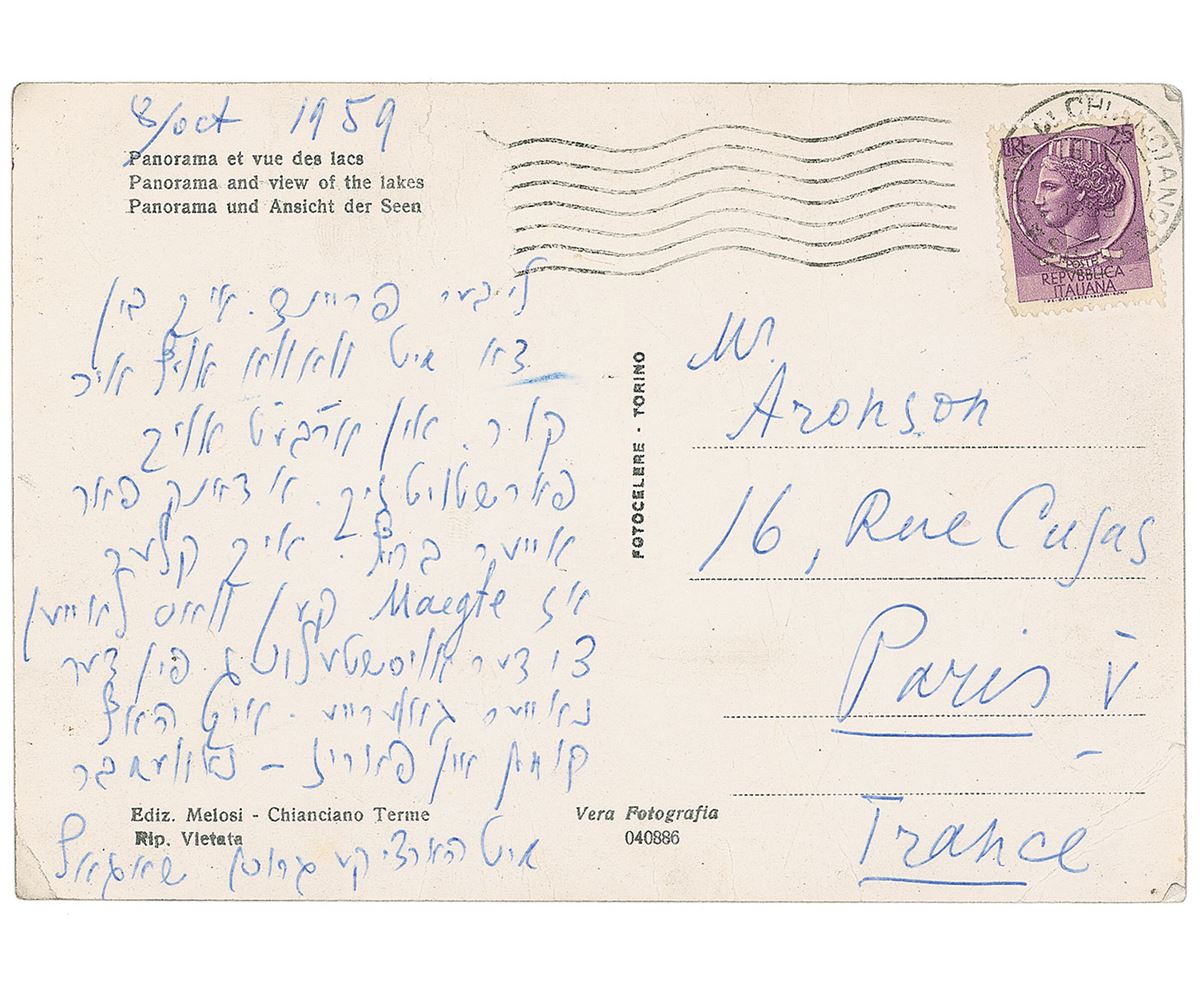 8/oct 1959
Panorama et vue des lacs
Panorama and view of the lakes
Panorama und Ansicht der Seen
ליבער פריינד. איך בין
דא מיט וואווא אויף איר
קור. און ארבעט אויך
פארשטייט זיך. א דאנק פאר
אייער בריוו. איך קלער
אז Maegte קען וואס
צו דער אויסשטעלונג פון דער
נייער האף
קומען אין פאריז – נאוועמבער
Ediz. Melosi - Chianciano Terme
Rip. Vietata
מיט הארציקע גרוסן שאגאל
FOTOCELERE - TORINO
Vera Fotografia
040886
CHIANCIANO
LIRE 25
POSTE
REPVBBLICA
ITALIANA
Mr.
Aronson
16, Rue Cujas
Paris V
France